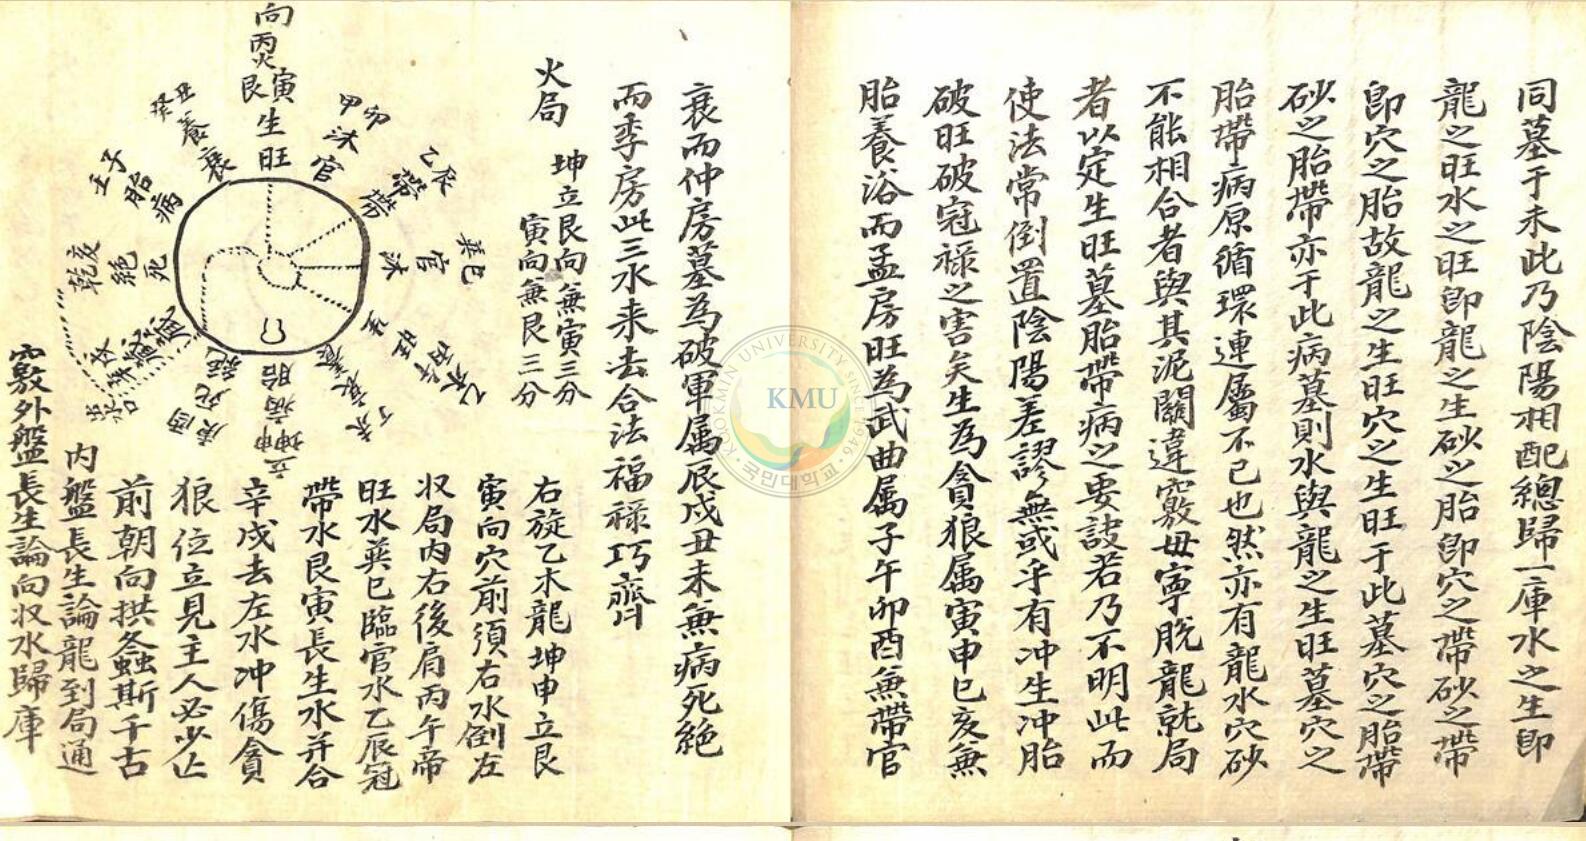 同墓于未此乃陰陽相配總歸一庫水之生卽
龍之旺水之旺卽龍之生砂之胎卽穴之帶砂之帶
卽穴之胎故龍之生旺穴之生旺于此墓穴之胎帶
砂之胎帶亦于此病墓則水與龍之生旺墓穴之
胎帶病原循環連屬不已也然亦有龍水穴砂
不能相合者與其泥關違竅毋寧脫龍就局
者以定生旺墓胎帶病之要訣若乃不明此而
使法常倒置陰陽差謬無或乎有冲生冲胎
破旺破冠祿之害矣生為貪狼属寅申巳亥無
胎養浴而孟房旺為武曲属子午卯酉無帶官
衰而仲房墓為破軍属辰戌丑未無病死絶
而季房此三水来去合法福祿巧齊
火局
坤立艮向無寅三分
寅向無艮三分
向
丙火
艮寅
生
旺
甲卯
沐
官
乙辰
帶
帶
巽巳
官
沐
旺
生
養
胎
病
坤申
絶
死
庚酉
乾亥
絶
死
壬子
胎
病
癸丑
養
衰
右旋乙木龍坤申立艮
寅向穴前須右水倒左
収局内右後肩丙午帝
旺水巽巳臨官水乙辰冠
帶水艮寅長生水并合
辛戌去左水冲傷貪
狼位立見主人必少亡
前朝向拱螽斯千古
内盤長生論龍到局通
竅外盤長生論向収水歸庫
KOOKMIN UNIVERSITY SINCE 1946
KMU
국민대학교